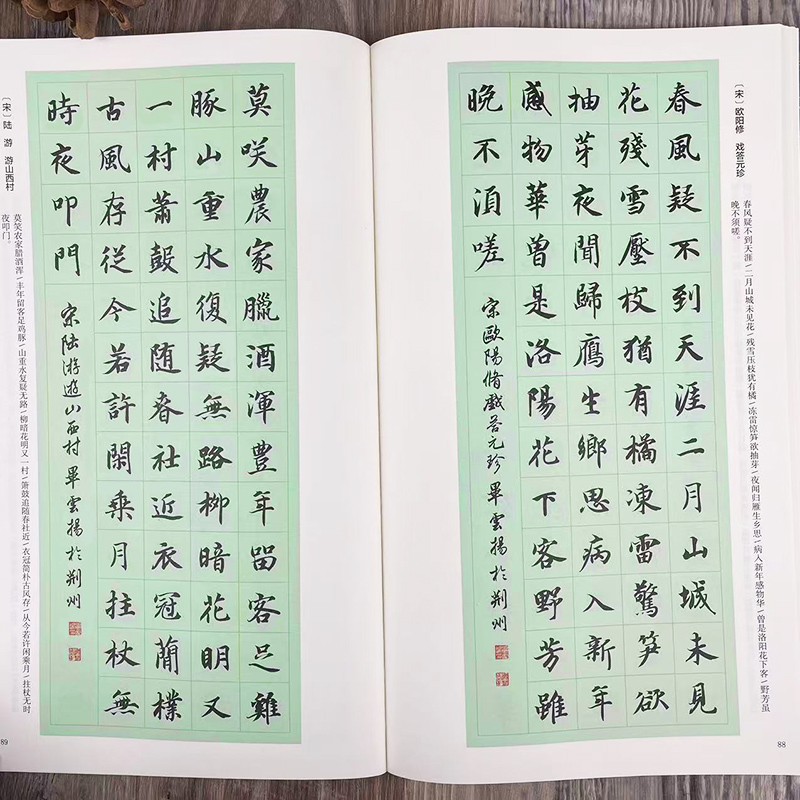 〔宋〕欧阳修 戏答元珍
春风疑不到天涯/二月山城未见花/残雪压枝犹有橘/冻雷惊笋欲抽芽/夜闻归雁生乡思/病入新年感物华/曾是洛阳花下客/野芳虽
晚不须嗟。
春風疑不到天涯二月山城未見
花殘雪壓枝猶有橘凍雷驚笋欲
抽芽夜聞歸鴈生鄉思病入新年
感物華曾是洛陽花下客野芳雖
晚不須嗟
宋歐陽脩戲答元珍畢雲揚於荆州
88
莫咲農家臘酒渾豊年畱客足雞
豚山重水復疑無路柳暗花明又
一村萧鼓追随春社近衣冠蕳樸
古風存從今若許閑乘月拄杖無
時夜叩門
宋陸游遊山西村畢雲揚於荆州
〔宋〕陆 游 游山西村
莫笑农家腊酒浑/丰年留客足鸡豚/山重水复疑无路/柳暗花明又一村/箫鼓追随春社近/衣冠简朴古风存/从今若许闲乘月/拄杖无时
夜叩门。
89